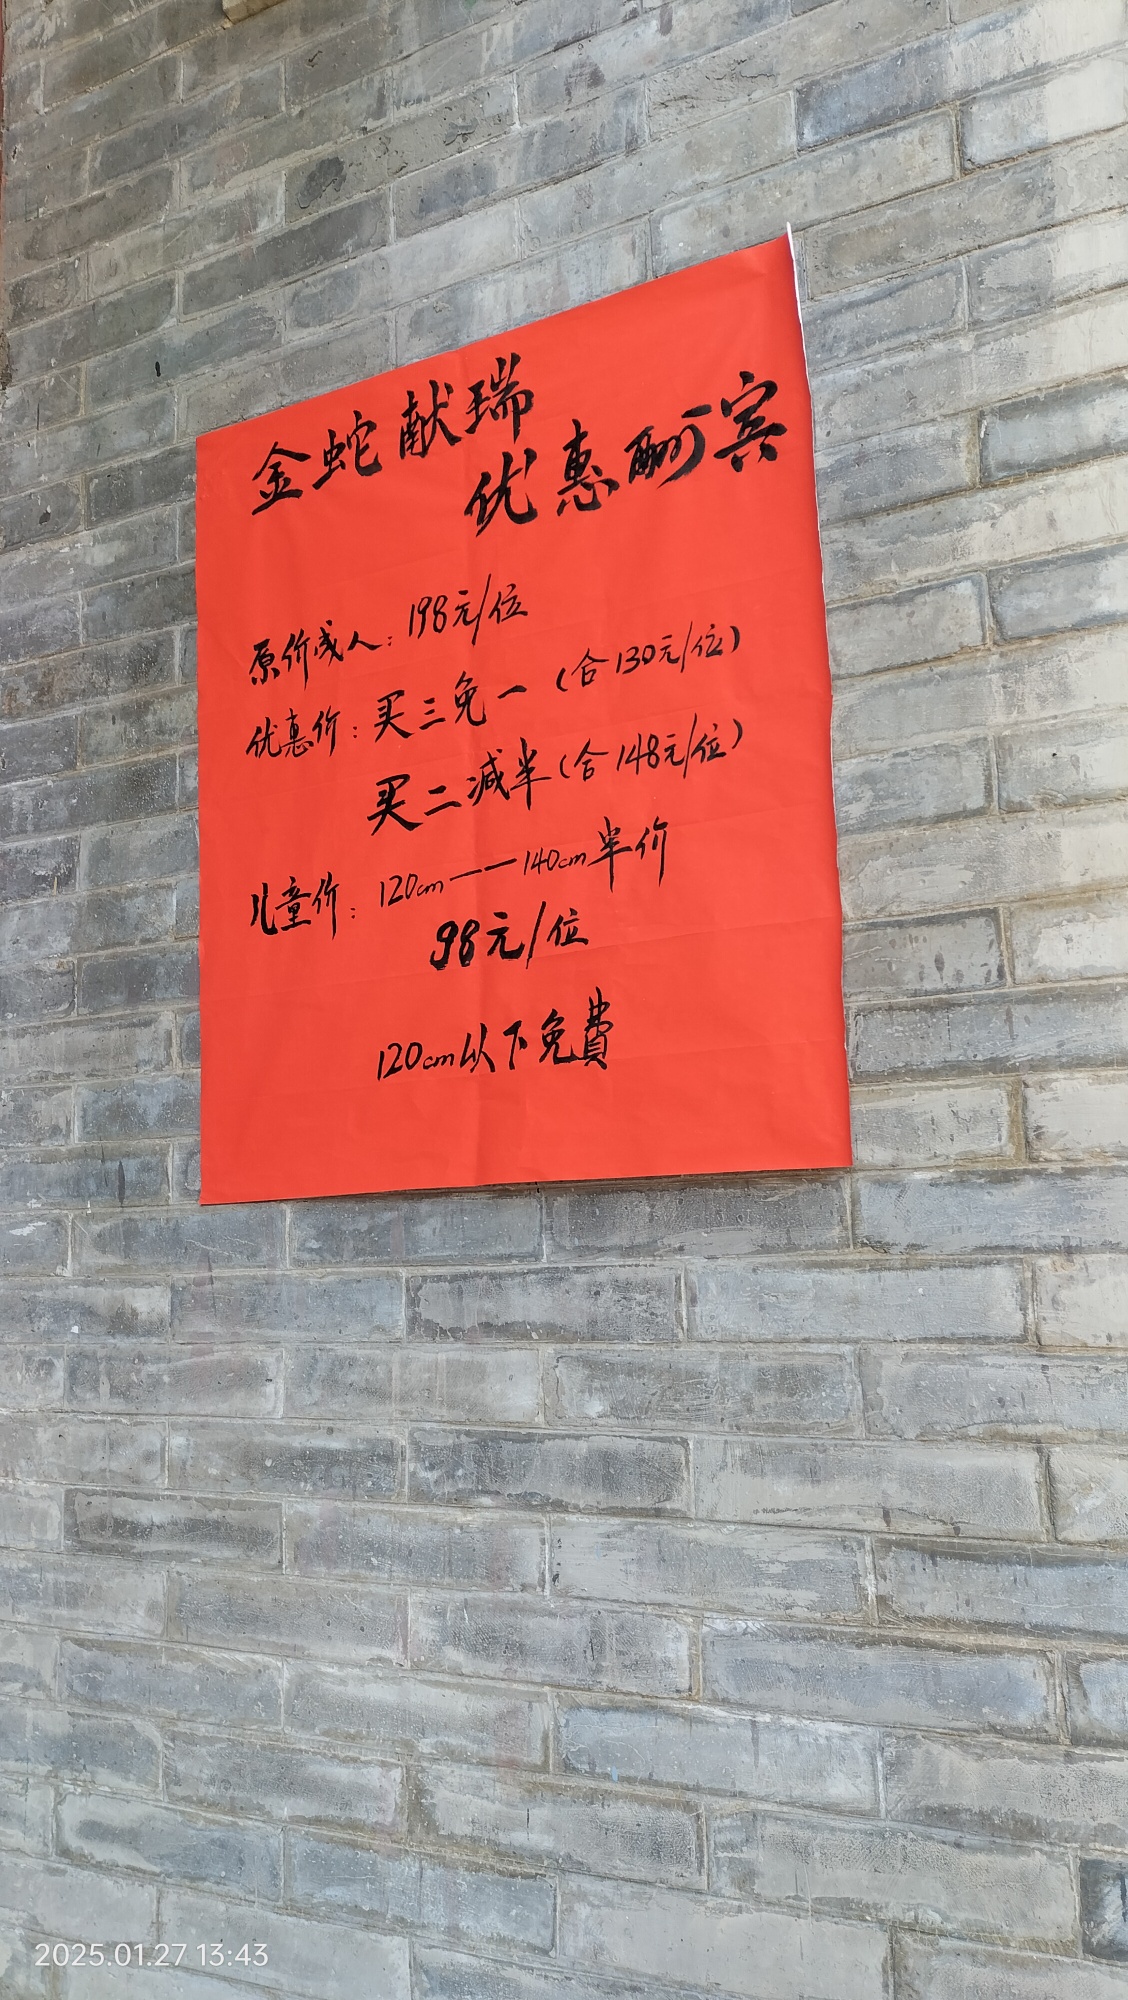 金蛇献瑞
优惠酬宾
原价成人：198元/位
优惠价：买三免一（合130元/位）
买二减半（合148元/位）
儿童价：120cm——140cm半价
98元/位
120cm以下免費
2025.01.27 13:43